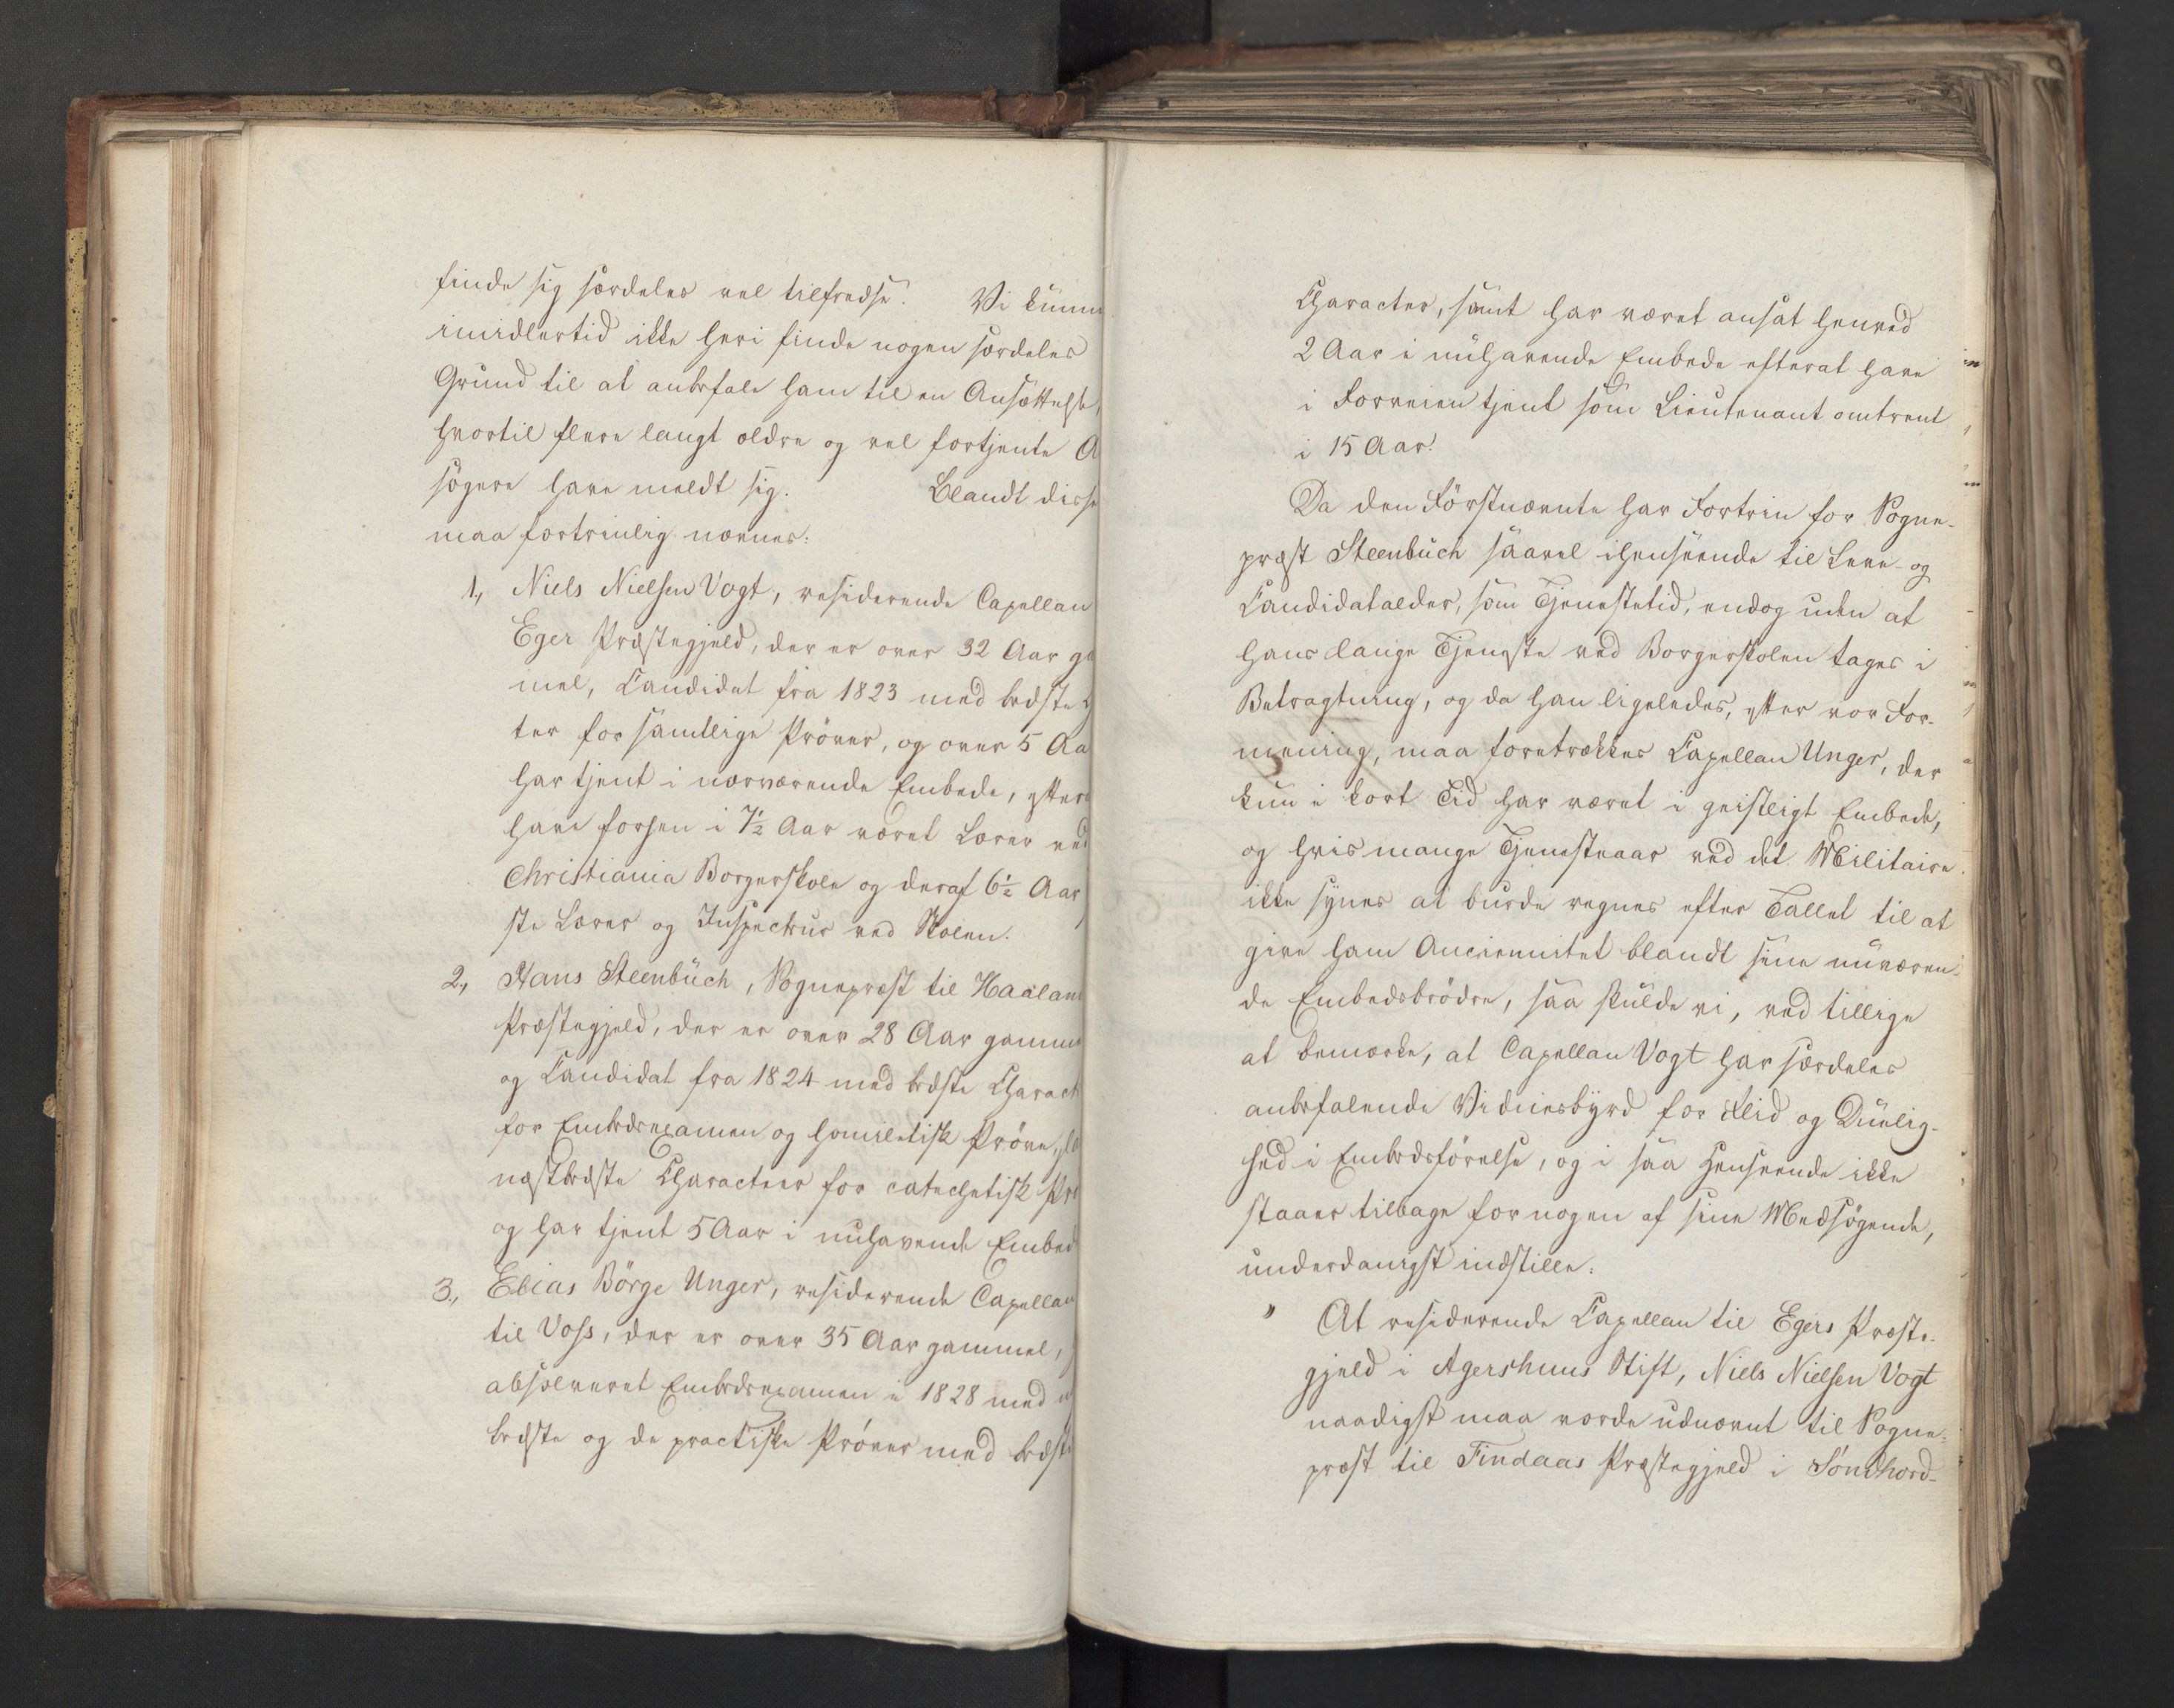 finde sig særdeles vel tilfredse. Vi kunne
imidlertid ikke heri finde nogen særdeles
Grund til at anbefale ham til en Ansættelse,
hvortil flere langt ældre og vel fortjente A
søgere have meldt sig. Blandt disse
maa fortrinlig nævnes:
1, Niels Nielsen Vogt, residerende Capellan
Eger Præstegjeld, der er over 32 Aar ga
mel, Candidat fra 1823 med bedste
ter for samtlige Prøver, og over 5 Aa
har tjent i nærværende Embede, efter
have forhen i 7½ Aar været Lærer ved
Christiania Borgerskole og deraf 6½ Aar
ste Lærer og Inspecteur ved Skolen.
2, Hans Steenbüch, Sognepræst til Haaland
Præstegjeld, der er over 28 Aar gamme
og Candidat fra 1824 med bedste Charact
for Embedsexamen og homiletisk Prøve,
næstbedste Characteer for catechetisk Prø
og har tjent 5 Aar i nuhavende Embed
3, Elias Börge Unger, residerende Capellan
til Voss, der er over 35 Aar gammel,
absolveret Embedsexamen i 1828 med
bedste og de practiske Prøver med bedste
Character, samt har været ansat henved
2 Aar i nuhavende Embede efterat have
i Forveien tjent som Lieutenant omtrent
i 15 Aar.
Da den Förstnævnte har Fortrin for Sogne-
præst Steenbüch saavel ihenseende til Leve- og
Candidatalder, som Tjenestetid, endog uden at
hans lange Tjeneste ved Borgerskolen tages i
Betragtning, og da han ligeledes, efter vor For-
mening, maa foretrækkes Capellan Unger, der
kun i kort Tid har været i geistligt Embede,
og hvis mange Tjenesteaar ved det Militaire
ikke synes at burde regnes efter Tallet til at
give ham Anciennitet blandt sine nuværen-
de Embedsbrödre, saa skulde vi, ved tillige
at bemærke, at Capellan Vogt har særdeles
anbefalende Vidnesbyrd for Flid og Duelig-
hed i Embedsförelse, og i saa Henseende ikke
staaer tilbage for nogen af sine Medsögende,
underdanigst indstille:
" At residerende Capellan til Egers Præste-
gjeld i Agershuus Stift, Niels Nielsen Vogt
naadigst maa vorde udnævnt til Sogne-
præst til Findaas Præstegjeld i Söndhord-